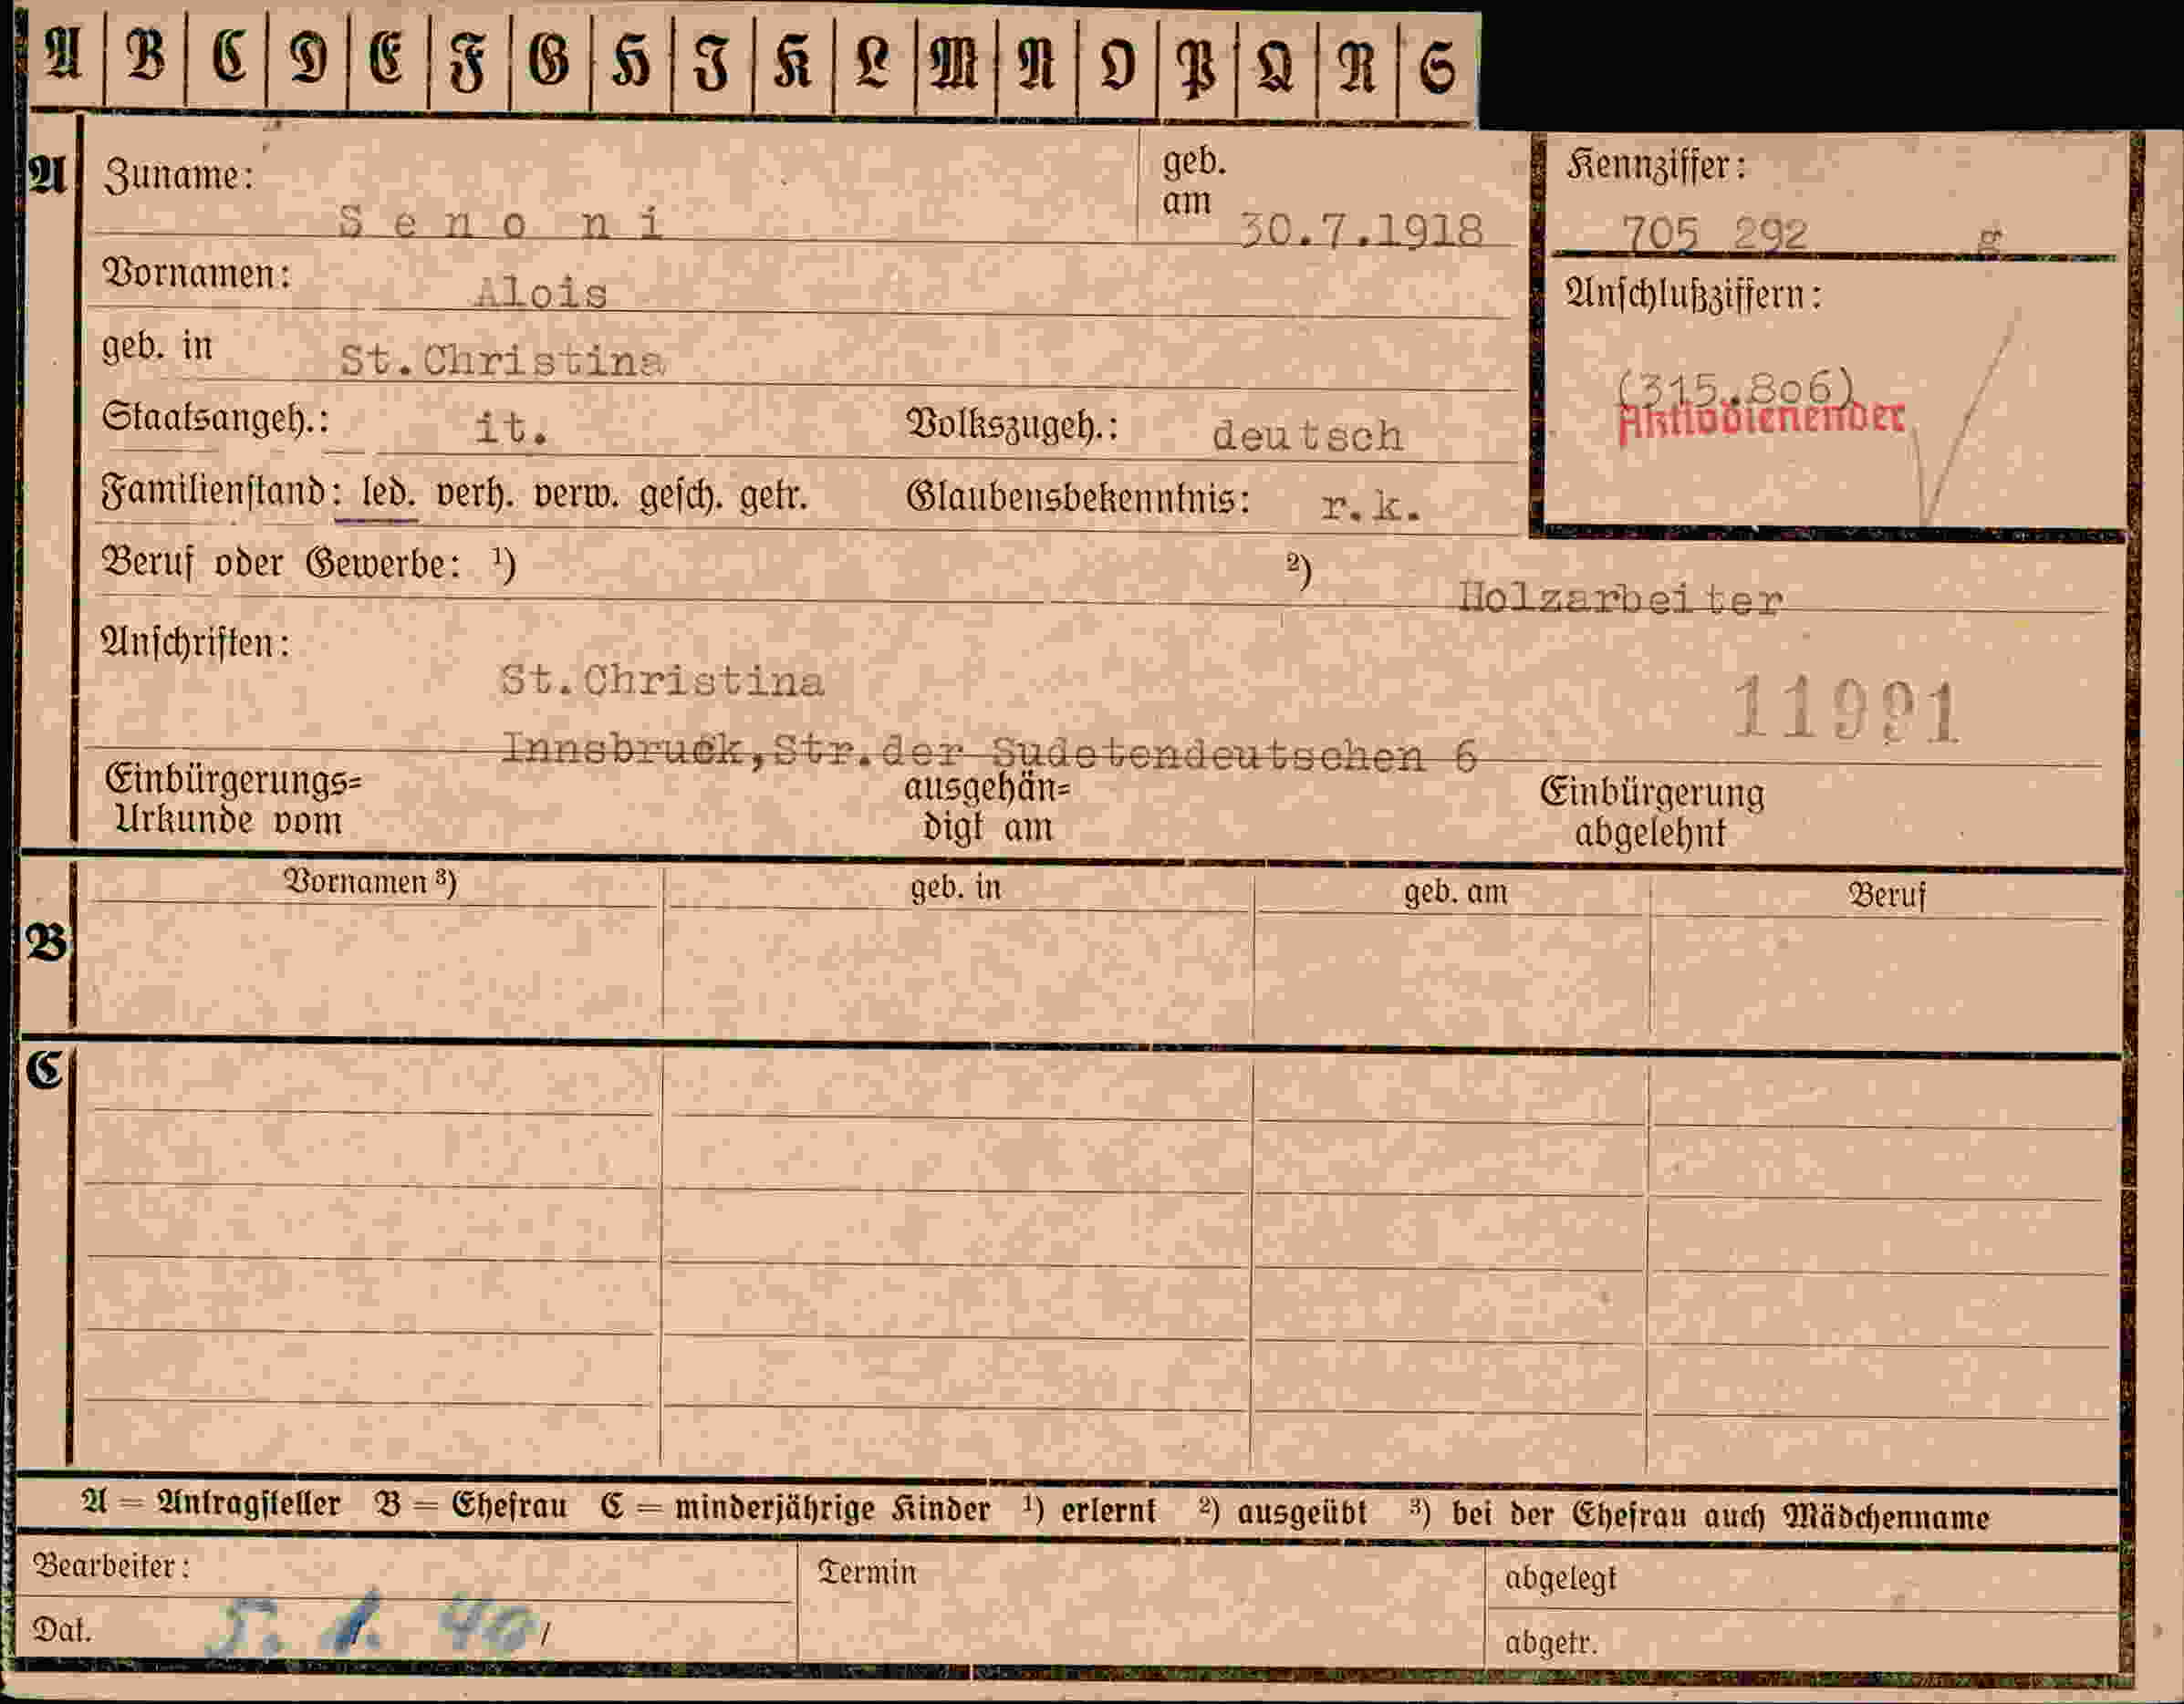 A B C D E F G H I K L M N O P Q R S
A Zuname: S e n o n i geb. am 30.7.1918
Kennziffer: 705 292 g
Vornamen: Alois
Anschlußziffern:
geb. in St.Christina
(315.806)
Aktivdienender
Staatsangeh.: it. Volkszugeh.: deutsch
Familienstand: led. verh. verw. gesch. getr. Glaubensbekenntnis: r.k.
Beruf oder Gewerbe: ¹) ²) Holzarbeiter
Anschriften:
St.Christina
11991
Innsbruck,Str.der Sudetendeutschen 6
Einbürgerungs= ausgehän= Einbürgerung
Urkunde vom digt am abgelehnt
B Vornamen ³) geb. in geb. am Beruf
C
A = Antragsteller B = Ehefrau C = minderjährige Kinder ¹) erlernt ²) ausgeübt ³) bei der Ehefrau auch Mädchenname
Bearbeiter: Termin abgelegt
Dat. 5. 1. 40 / abgetr.